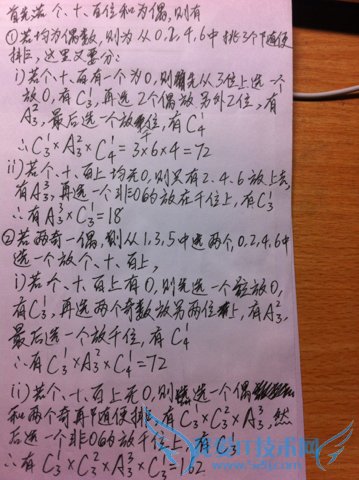 首先若个、十、百位和为偶,则有
①若均为偶数,则为从0,2,4,6中挑3个随便
排,这里又要分:
i)若个、十、百有一个为0,则先从3位上选一个
放0,有C₃¹,再选2个偶放另外2位,有
A₃²,最后选一个放千位,有C₄¹
∴C₃¹×A₃²×C₄¹=3×6×4=72
ii)若个、十、百上均无0,则只有2、4、6放上去,
有A₃³,再选一个非0的放在千位上,有C₃¹
∴有A₃³×C₃¹=18
②若两奇一偶,则从1,3,5中选两个,0,2,4,6中
选一个放个、十、百上,
i)若个、十、百上有0,则先选一个位放0,
有C₃¹,再选两个奇数放另两位上,有A₃²,
最后选一个放千位,有C₄¹
∴有C₃¹×A₃²×C₄¹=72
ii)若个、十、百上无0,则选一个偶
和两个奇再随便排,有C₃¹×C₃²×A₃³,然
后选一个非0的放千位上,有C₃¹
∴有C₃¹×C₃²×A₃³×C₃¹=162